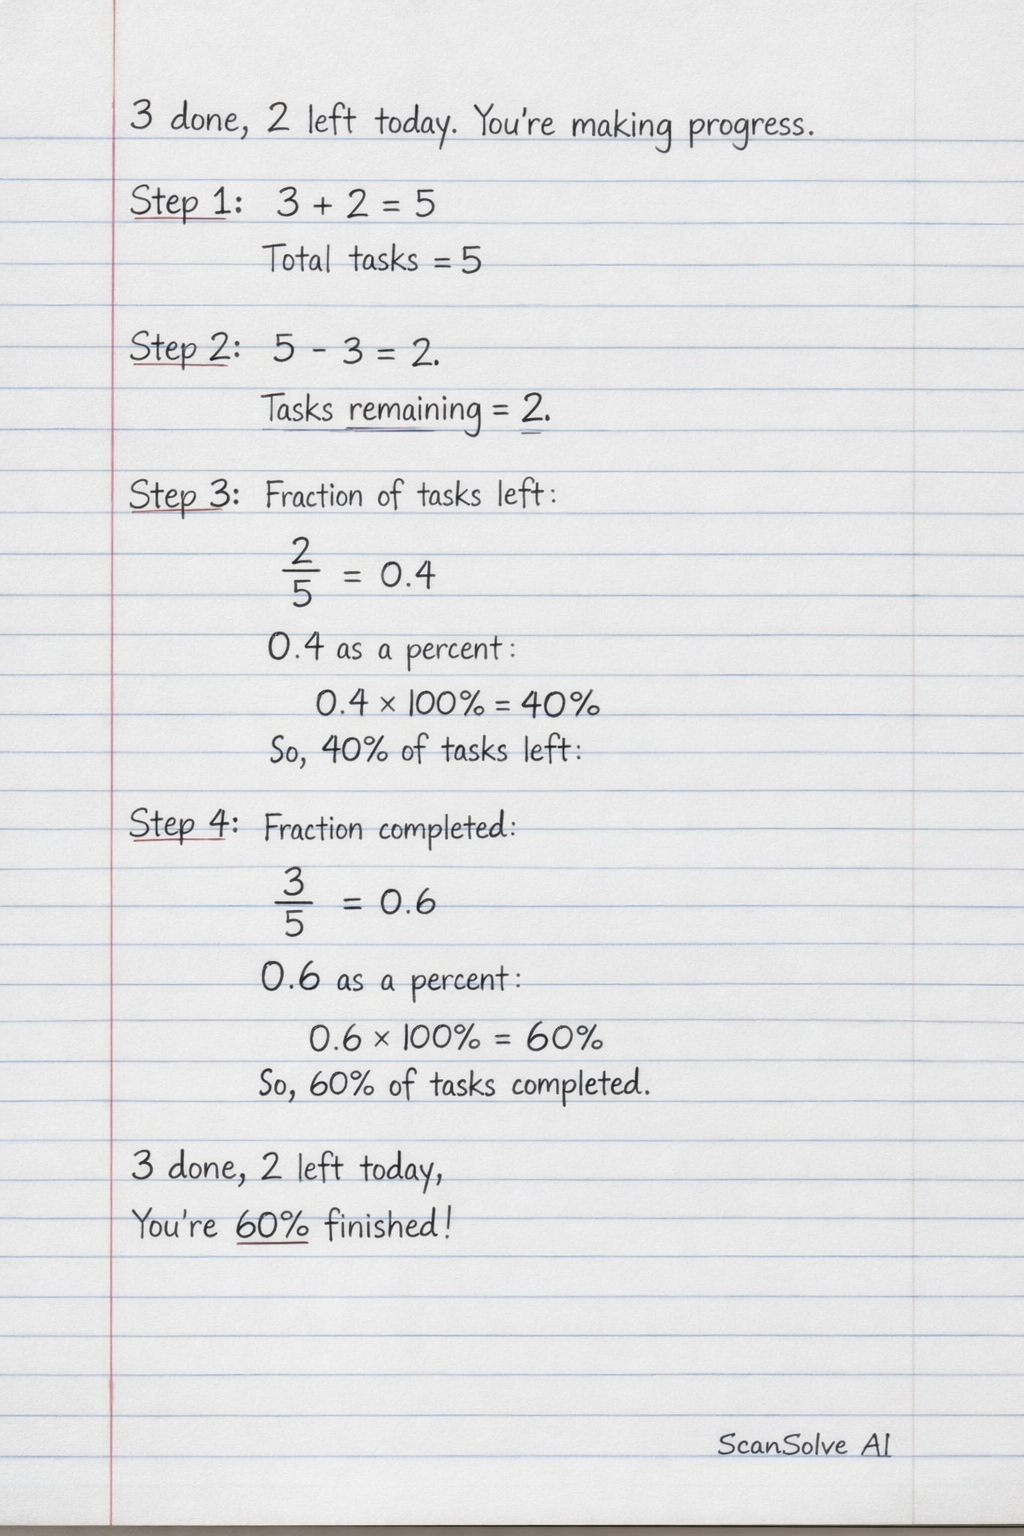 3 done, 2 left today. You're making progress.
Step 1: 3 + 2 = 5
Total tasks = 5
Step 2: 5 - 3 = 2.
Tasks remaining = 2.
Step 3: Fraction of tasks left:
2/5 = 0.4
0.4 as a percent:
0.4 × 100% = 40%
So, 40% of tasks left:
Step 4: Fraction completed:
3/5 = 0.6
0.6 as a percent:
0.6 × 100% = 60%
So, 60% of tasks completed.
3 done, 2 left today,
You're 60% finished!
ScanSolve AI